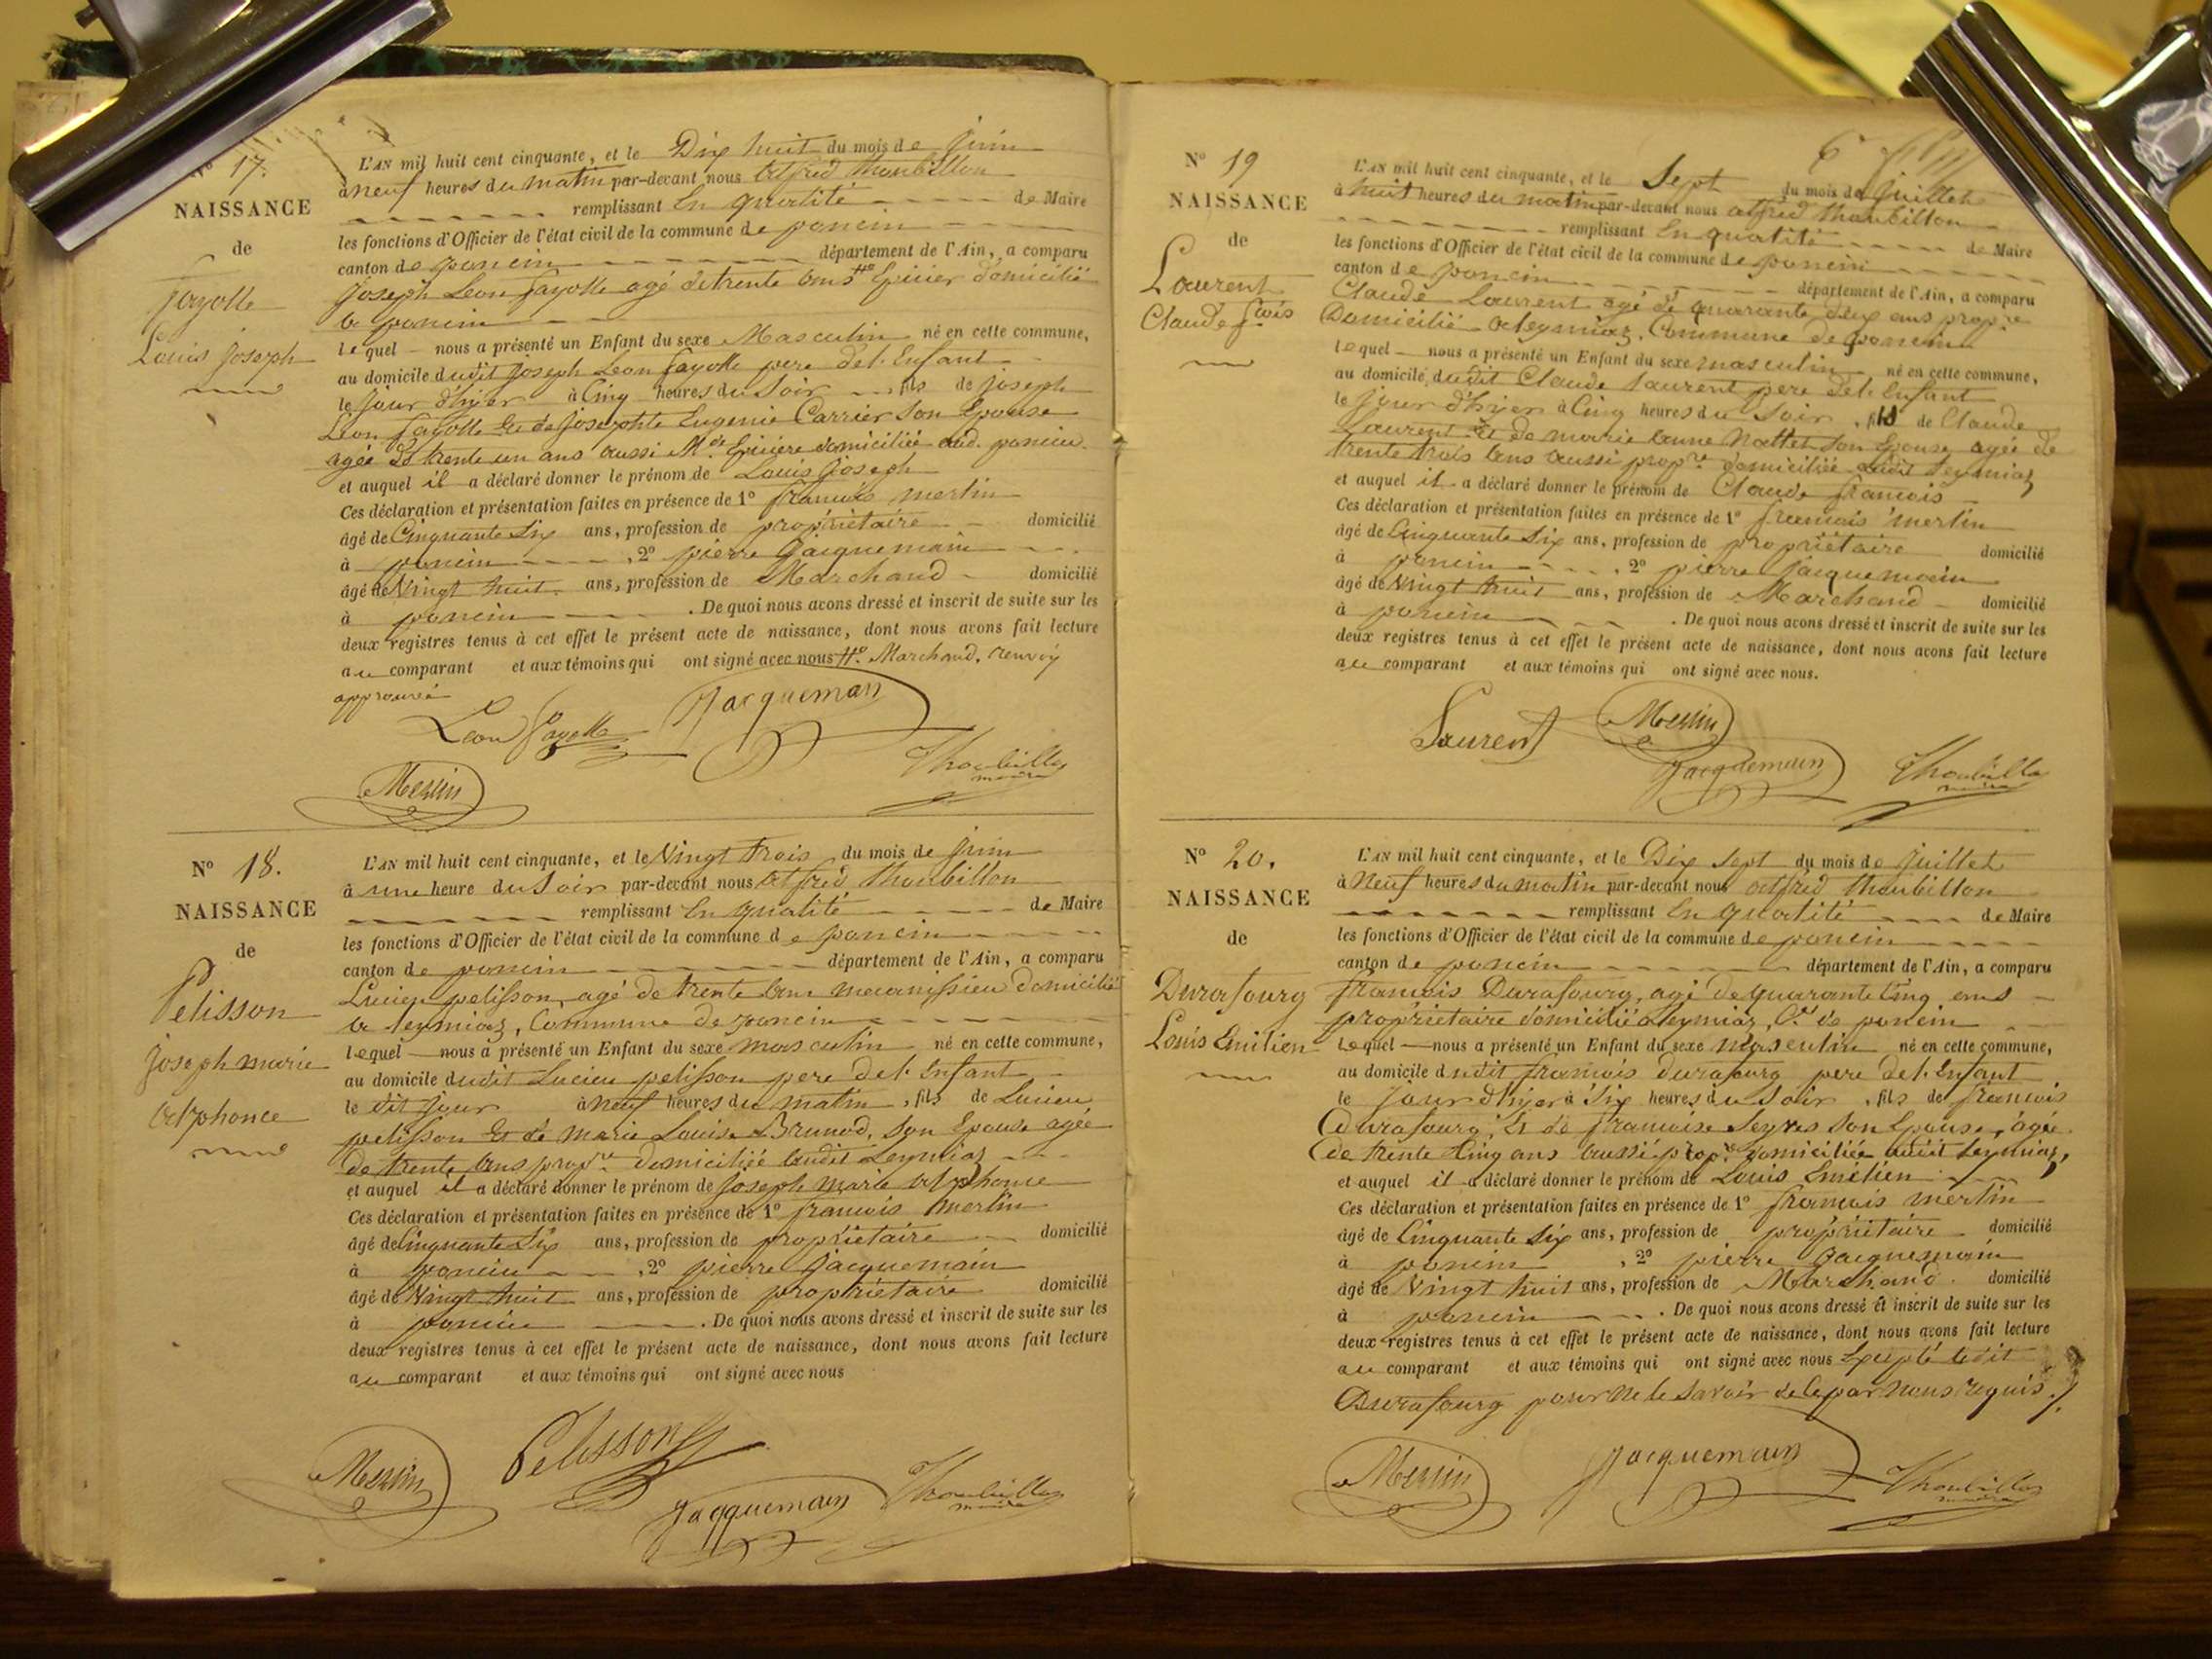 N° 17.
NAISSANCE
de
fayolle
Louis joseph
L'AN mil huit cent cinquante, et le Dix huit du mois de juin
à neuf heures du matin par-devant nous alfred thoubillon
remplissant en qualité de Maire
les fonctions d'Officier de l'état civil de la commune de poncin
canton de poncin département de l'Ain, a comparu
joseph Leon fayolle agé de trente ans Epicier domicilié
a poncin
lequel nous a présenté un Enfant du sexe Masculin né en cette commune,
au domicile dudit joseph Leon fayolle pere de l'Enfant
le jour d'hyer à Cinq heures du Soir fils de joseph
Leon fayolle Et de josephte Eugenie Carrier Son Epouse
agée de trente un ans aussi Mde Epiciere domiciliée aud. poncin
et auquel il a déclaré donner le prénom de Louis joseph
Ces déclaration et présentation faites en présence de 1° francois merlin
âgé de Cinquante Six ans, profession de propriétaire domicilié
à poncin , 2° pierre jacquemain
âgé de Vingt huit ans, profession de Marchand domicilié
à poncin . De quoi nous avons dressé et inscrit de suite sur les
deux registres tenus à cet effet le présent acte de naissance, dont nous avons fait lecture
au comparant et aux témoins qui ont signé avec nous Marchand, renvoy
approuvé
Leon Fayolle Jacquemain
Thoubillon
maire
Merlin
N° 18.
NAISSANCE
de
Pelisson
joseph marie
alphonce
L'AN mil huit cent cinquante, et le Vingt trois du mois de juin
à une heure du Soir par-devant nous alfred thoubillon
remplissant en qualité de Maire
les fonctions d'Officier de l'état civil de la commune de poncin
canton de poncin département de l'Ain, a comparu
Lucien pelisson, agé de trente ans mecanissien domicilié
a leymiaz, Commune de poncin
lequel nous a présenté un Enfant du sexe masculin né en cette commune,
au domicile dudit Lucien pelisson pere de l'Enfant
le dit jour à neuf heures du matin , fils de Lucien
pelisson Et de marie Louise Brunod, son Epouse agée
de trente ans propre domiciliée audit Leymiaz
et auquel il a déclaré donner le prénom de joseph marie alphonce
Ces déclaration et présentation faites en présence de 1° francois merlin
âgé de Cinquante Six ans, profession de propriétaire domicilié
à poncin , 2° pierre jacquemain
âgé de Vingt huit ans, profession de propriétaire domicilié
à poncin . De quoi nous avons dressé et inscrit de suite sur les
deux registres tenus à cet effet le présent acte de naissance, dont nous avons fait lecture
au comparant et aux témoins qui ont signé avec nous
Merlin Pelisson
Jacquemain Thoubillon
maire
N° 19
NAISSANCE
de
Laurent
Claude fcois
L'AN mil huit cent cinquante, et le Sept du mois de juillet
à huit heures du matin par-devant nous alfred thoubillon
remplissant en qualité de Maire
les fonctions d'Officier de l'état civil de la commune de poncin
canton de poncin département de l'Ain, a comparu
Claude Laurent agé de quarante deux ans propre
Domicilié a leymiaz, Commune de poncin
lequel nous a présenté un Enfant du sexe masculin né en cette commune,
au domicile dudit Claude Laurent pere de l'Enfant
le jour d'hyer à Cinq heures du Soir , fils de Claude
Laurent Et de marie anne nattet son Epouse agée de
trente trois ans aussi propre domiciliée audit leymiaz
et auquel il a déclaré donner le prénom de Claude francois
Ces déclaration et présentation faites en présence de 1° francois merlin
âgé de Cinquante Six ans, profession de propriétaire domicilié
à poncin , 2° pierre jacquemain
âgé de Vingt huit ans, profession de Marchand domicilié
à poncin . De quoi nous avons dressé et inscrit de suite sur les
deux registres tenus à cet effet le présent acte de naissance, dont nous avons fait lecture
au comparant et aux témoins qui ont signé avec nous.
Laurent Merlin
Jacquemain Thoubillon
maire
N° 20.
NAISSANCE
de
Durafourg
Louis Emilien
L'AN mil huit cent cinquante, et le Dix Sept du mois de juillet
à Neuf heures du matin par-devant nous alfred thoubillon
remplissant en qualité de Maire
les fonctions d'Officier de l'état civil de la commune de poncin
canton de poncin département de l'Ain, a comparu
francois Durafourg, agé de quarante Cinq ans
propriétaire domicilié a leymiaz, Cne de poncin
Lequel nous a présenté un Enfant du sexe masculin né en cette commune,
au domicile dudit francois durafourg pere de l'Enfant
le jour d'hyer à Six heures du Soir , fils de francois
durafourg, Et de francoise Seyves Son Epouse, agée
de trente Cinq ans aussi propre domiciliée audit leymiaz,
et auquel il a déclaré donner le prénom de Louis Emilien
Ces déclaration et présentation faites en présence de 1° francois merlin
âgé de Cinquante Six ans, profession de propriétaire domicilié
à poncin , 2° pierre jacquemain
âgé de Vingt huit ans, profession de Marchand. domicilié
à poncin . De quoi nous avons dressé et inscrit de suite sur les
deux registres tenus à cet effet le présent acte de naissance, dont nous avons fait lecture
au comparant et aux témoins qui ont signé avec nous Excepté ledit
Durafourg pour ne le Savoir de ce par nous requis ./.
Merlin Jacquemain Thoubillon
maire